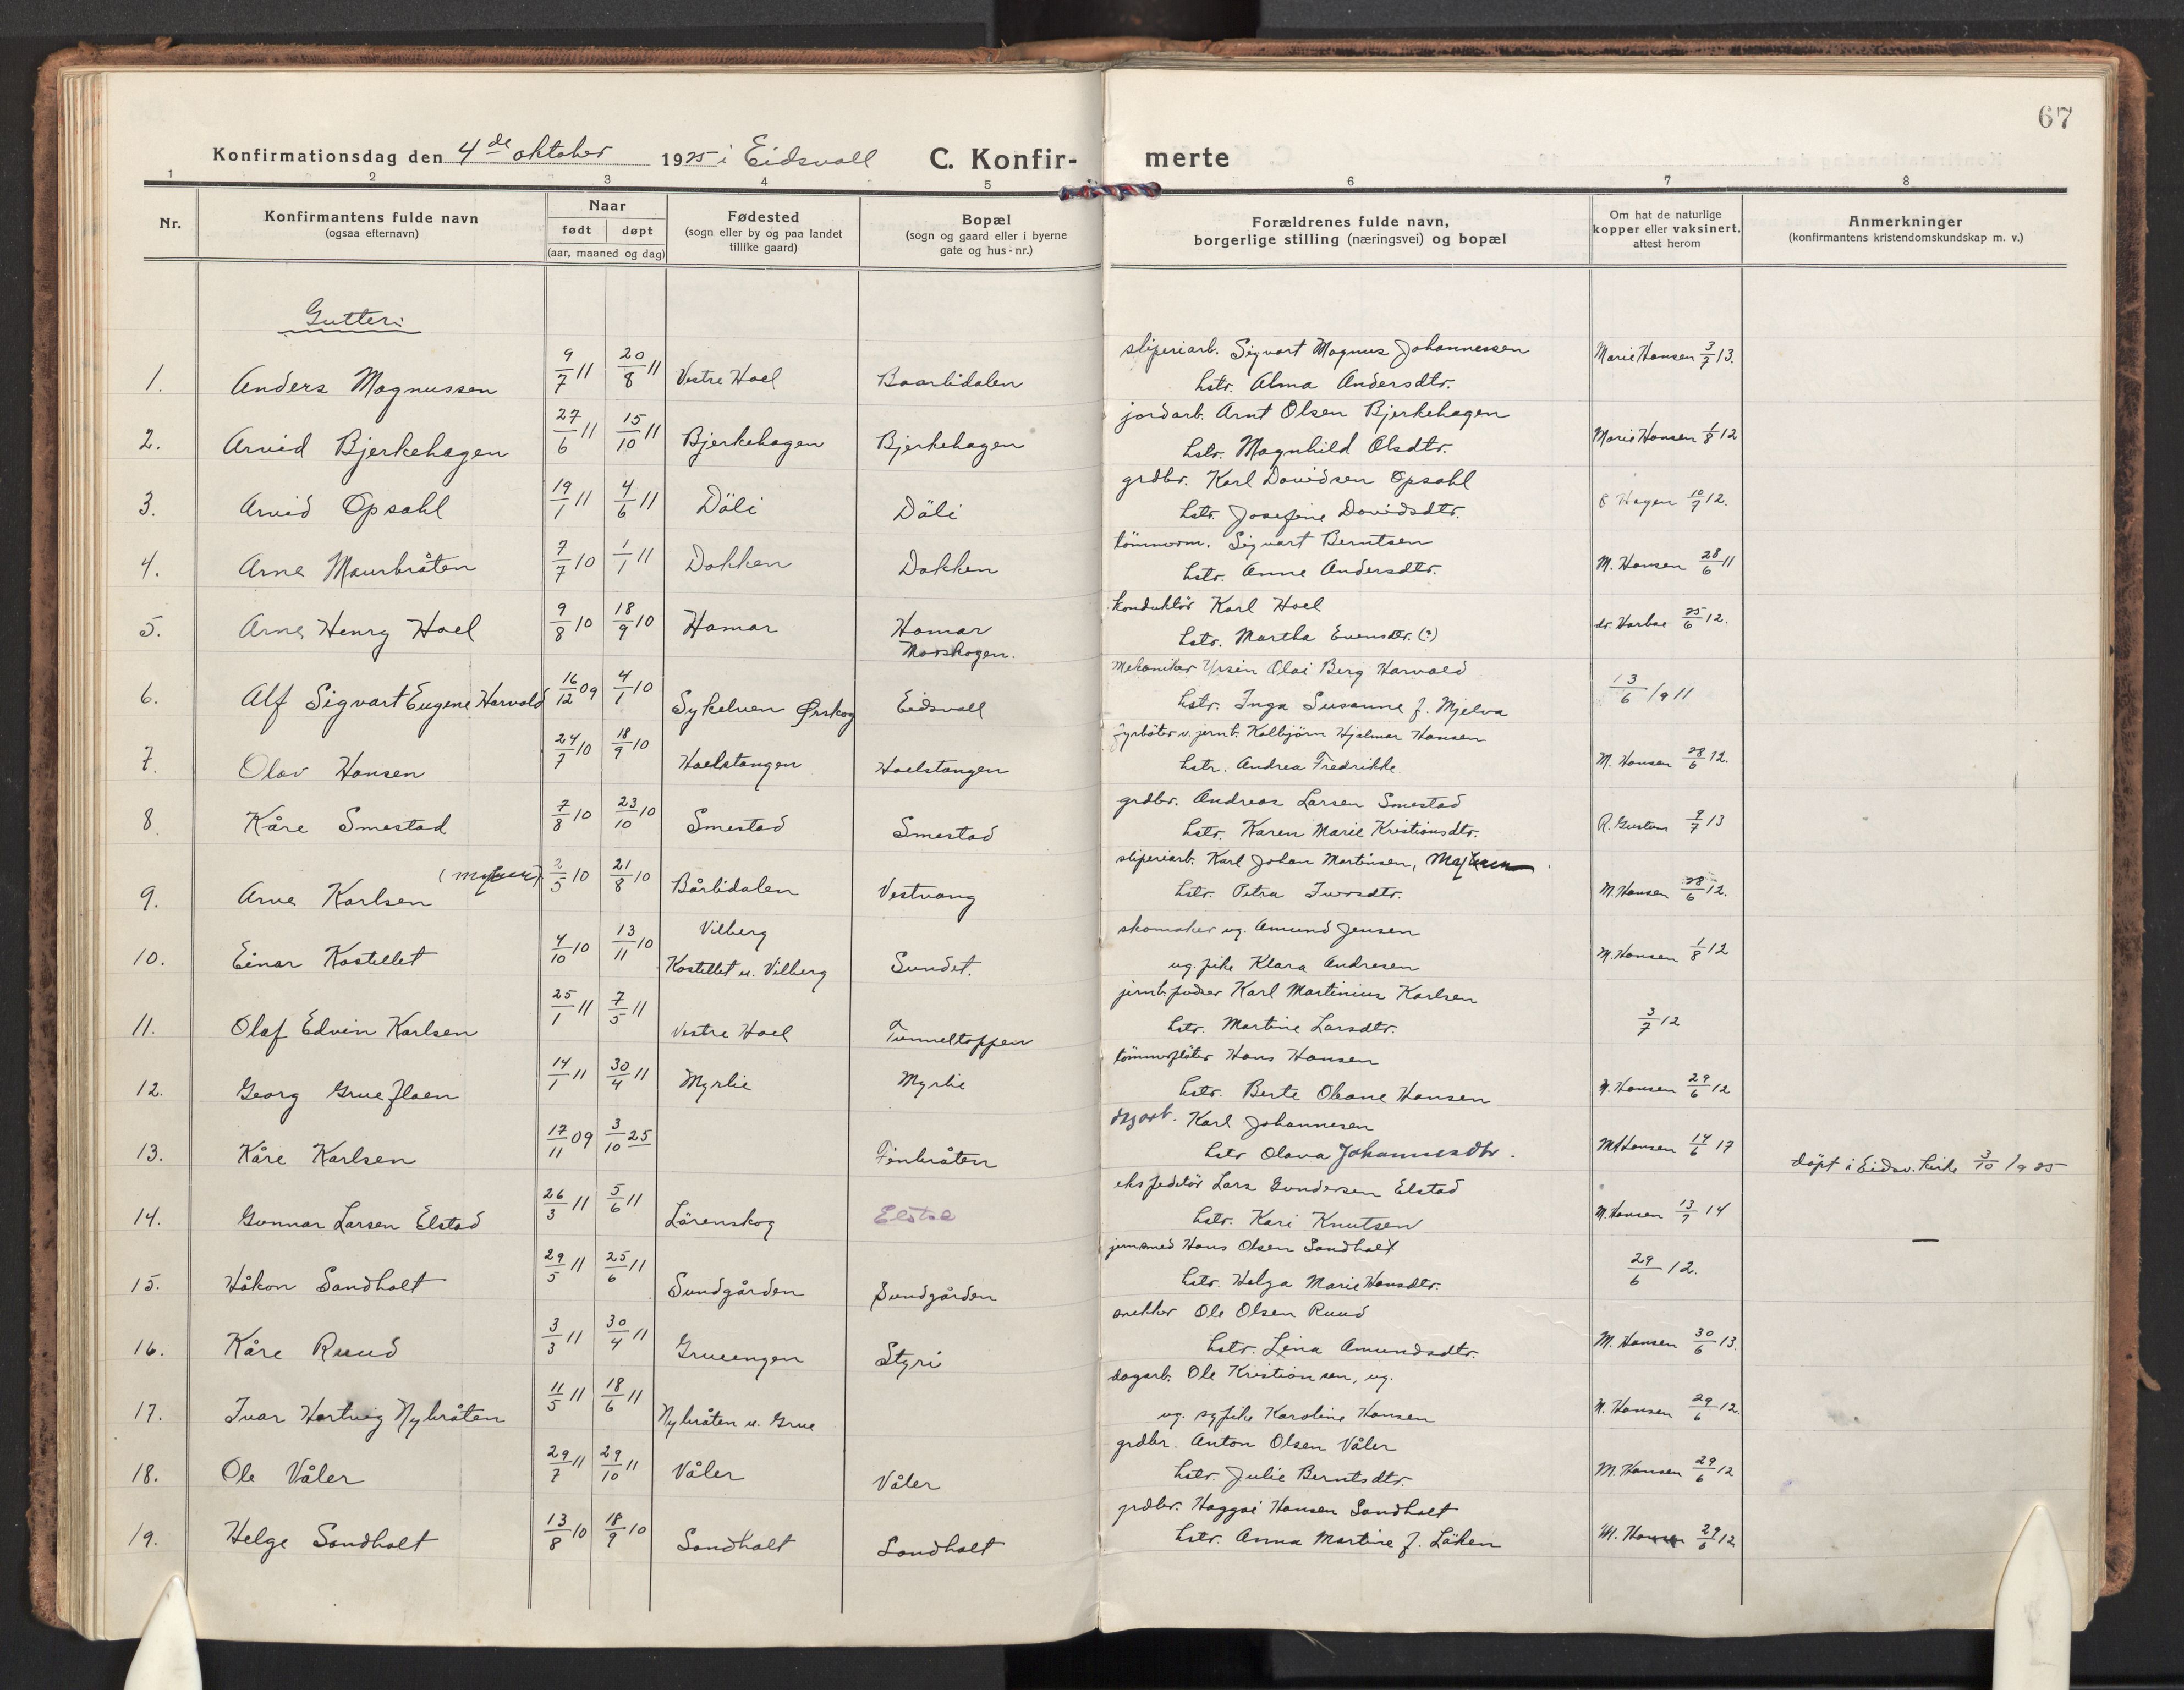 67
Konfirmationsdag den 4de oktober 1925 i Eidsvoll
C. Konfir-
merte
1 2 3 4 5 6 7 8
Nr.
Konfirmantens fulde navn
(ogsaa efternavn)
Naar
født døpt
(aar, maaned og dag)
Fødested
(sogn eller by og paa landet
tillike gaard)
Bopæl
(sogn og gaard eller i byerne
gate og hus-nr.)
Forældrenes fulde navn,
borgerlige stilling (næringsvei) og bopæl
Om hat de naturlige
kopper eller vaksinert,
attest herom
Anmerkninger
(konfirmantens kristendomskundskap m. v.)
Gutter:
sliperiarb. Sigvart Magnus Johannessen
1. Anders Magnussen 9/7 11 20/8 11 Vestre Hoel Baarlidalen hstr. Alma Andersdtr. Marie Hansen 3/7 13.
jordarb. Arnt Olsen Bjerkehagen
2. Arvid Bjerkehagen 27/6 11 15/10 11 Bjerkehagen Bjerkehagen hstr. Magnhild Olsdtr. Marie Hansen 1/8 12
grdbr. Karl Davidsen Opsahl
3. Arvid Opsahl 19/1 11 4/6 11 Döli Döli hstr. Josefine Davidsdtr. E Hagen 10/7 12.
tömmerm. Sigvart Berntsen
4. Arne Maurbråten 7/7 10 1/1 11 Dokken Dokken hstr. Anne Andersdtr. M. Hansen 28/6 11
konduktör Karl Hoel
5. Arne Henry Hoel 9/8 10 18/9 10 Hamar Hamar hstr. Martha Evensdtr. (?) dr. Harboe 25/6 12.
Morskogen.
Mekaniker Ursin Olai Berg Harvold
6. Alf Sigvart Eugene Harvold 16/12 09 4/1 10 Sykelven Ørskog Eidsvoll hstr. Inga Susanne f. Mjelva 13/6 1911
fyrböter v. jernb. Kolbjörn Hjalmar Hansen
7. Olav Hansen 24/7 10 18/9 10 Hoelstangen Hoelstangen hstr. Andrea Fredrikke. M. Hansen 28/6 12.
grdbr. Andreas Larsen Smestad
8 Kåre Smestad 7/8 10 23/10 10 Smestad Smestad hstr. Karen Marie Kristiansdtr. R. Gustum 7/7 13
sliperiarb. Karl Johan Martinsen,
9. Arve Karlsen 2/5 10 21/8 10 Bårlidalen Vestvang hstr. Petra Iversdtr. M. Hansen 28/6 12.
Vilberg skomaker ug. Amund Jensen
10. Einar Kastellet 4/10 10 13/11 10 Kastellet u. Vilberg Sundet. ug. pike Klara Andresen M. Hansen 1/8 12
jernb. pudser Karl Martinius Karlsen
11. Olaf Edvin Karlsen 25/1 11 7/5 11 Vestre Hoel Tunneltoppen hstr. Martine Larsdtr. 3/7 12
tömmerflöter Hans Hansen
12. Georg Grueflaen 14/1 11 30/4 11 Myrlie Myrlie hstr. Berte Oleane Hansen M. Hansen 29/6 12
dagarb. Karl Johannesen
13. Kåre Karlsen 17/11 09 3/10 25 Finbråten hstr Olava Johannesdtr. M Hansen 14/6 17 döpt i Eidsv. kirke 3/10 1925
ekspeditör Lars Gundersen Elstad
14. Gunnar Larsen Elstad 26/3 11 5/6 11 Lörenskog Elstad hstr. Kari Knutsen M. Hansen 13/7 14 —
jernsmed Hans Olsen Sandholt
15. Håkon Sandholt 29/5 11 25/6 11 Sundgården Sundgården hstr. Helga Marie Hansdtr. 29/6 12.
snekker Ole Olsen Ruud
16. Kåre Ruud 3/3 11 30/4 11 Grueengen Styri hstr. Lina Amundsdtr. M. Hansen 30/6 13.
dagarb. Ole Kristiansen, ug.
17. Ivar Hartvig Nybråten 11/5 11 18/6 11 Nybråten u. Grue ug. sypike Karoline Hansen M. Hansen 29/6 12.
grdbr. Anton Olsen Våler
18. Ole Våler 29/7 11 29/10 11 Våler Våler hstr. Julie Berntsdtr. M. Hansen 29/6 12
grdbr. Haggai Hansen Sandholt
19. Helge Sandholt 13/8 10 18/9 10 Sandholt Sandholt hstr. Anna Martine f. Löken M. Hansen 29/6 12